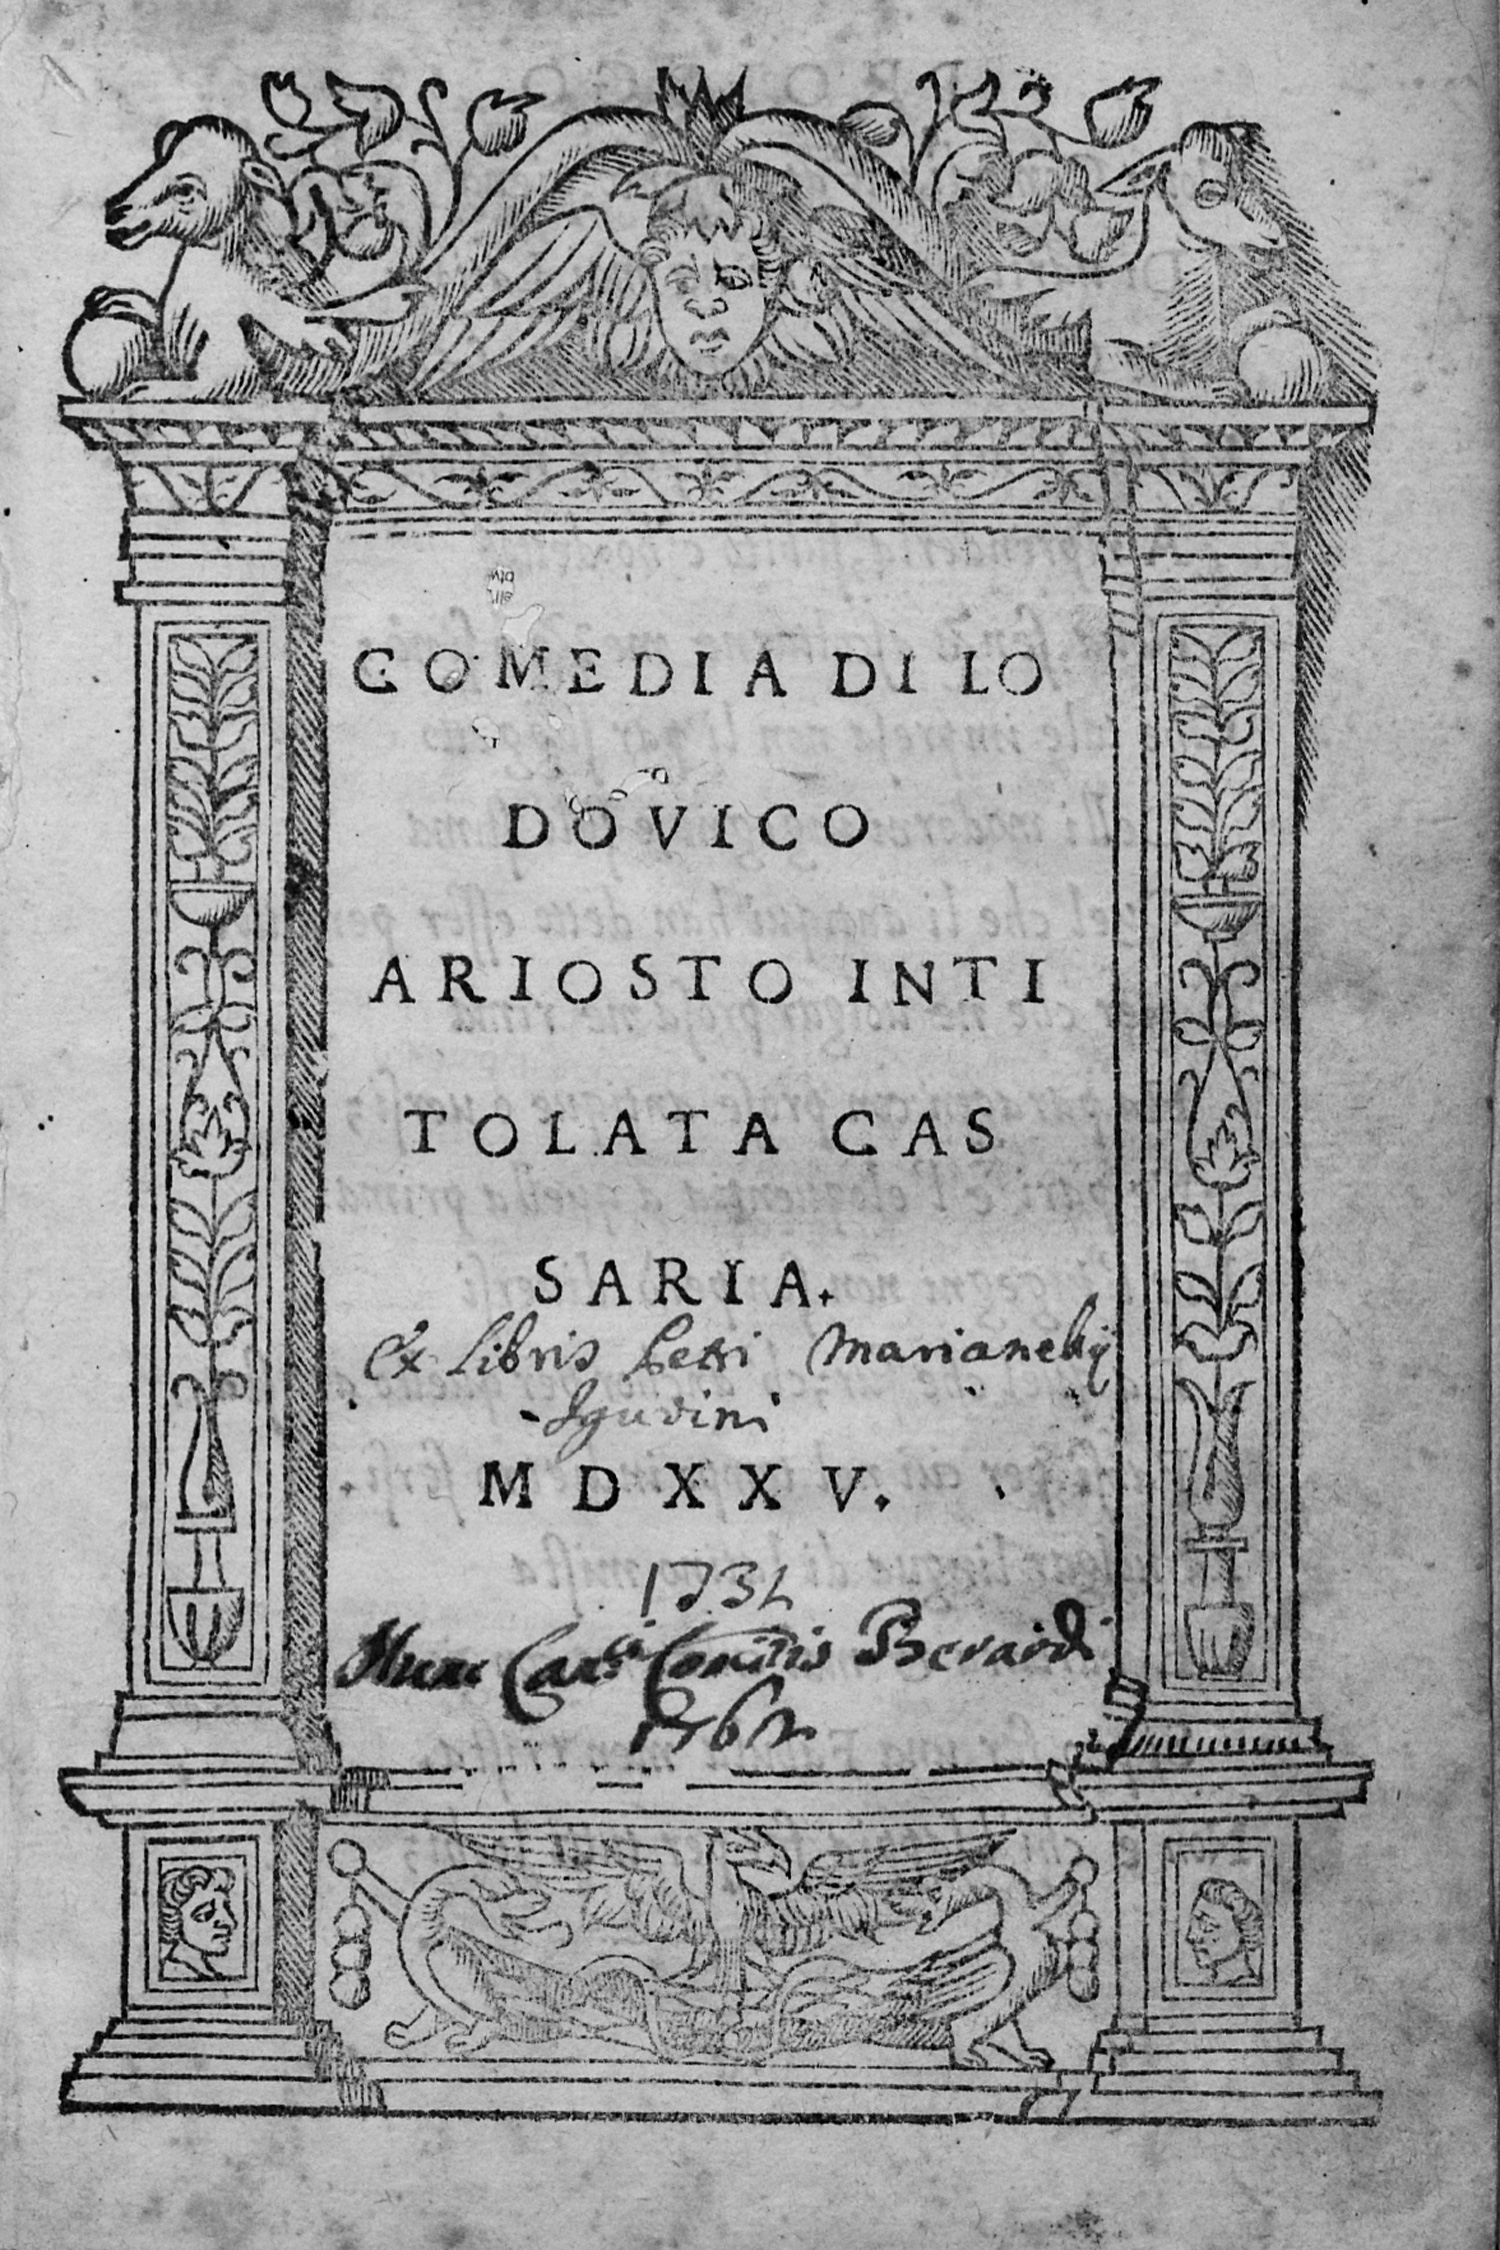 COMEDIA DI LO
DOVICO
ARIOSTO INTI
TOLATA CAS
SARIA.
Ex Libris Petri Marianelij
Iguvini
MDXXV.
173
Nunc Comitis Berardi
1762